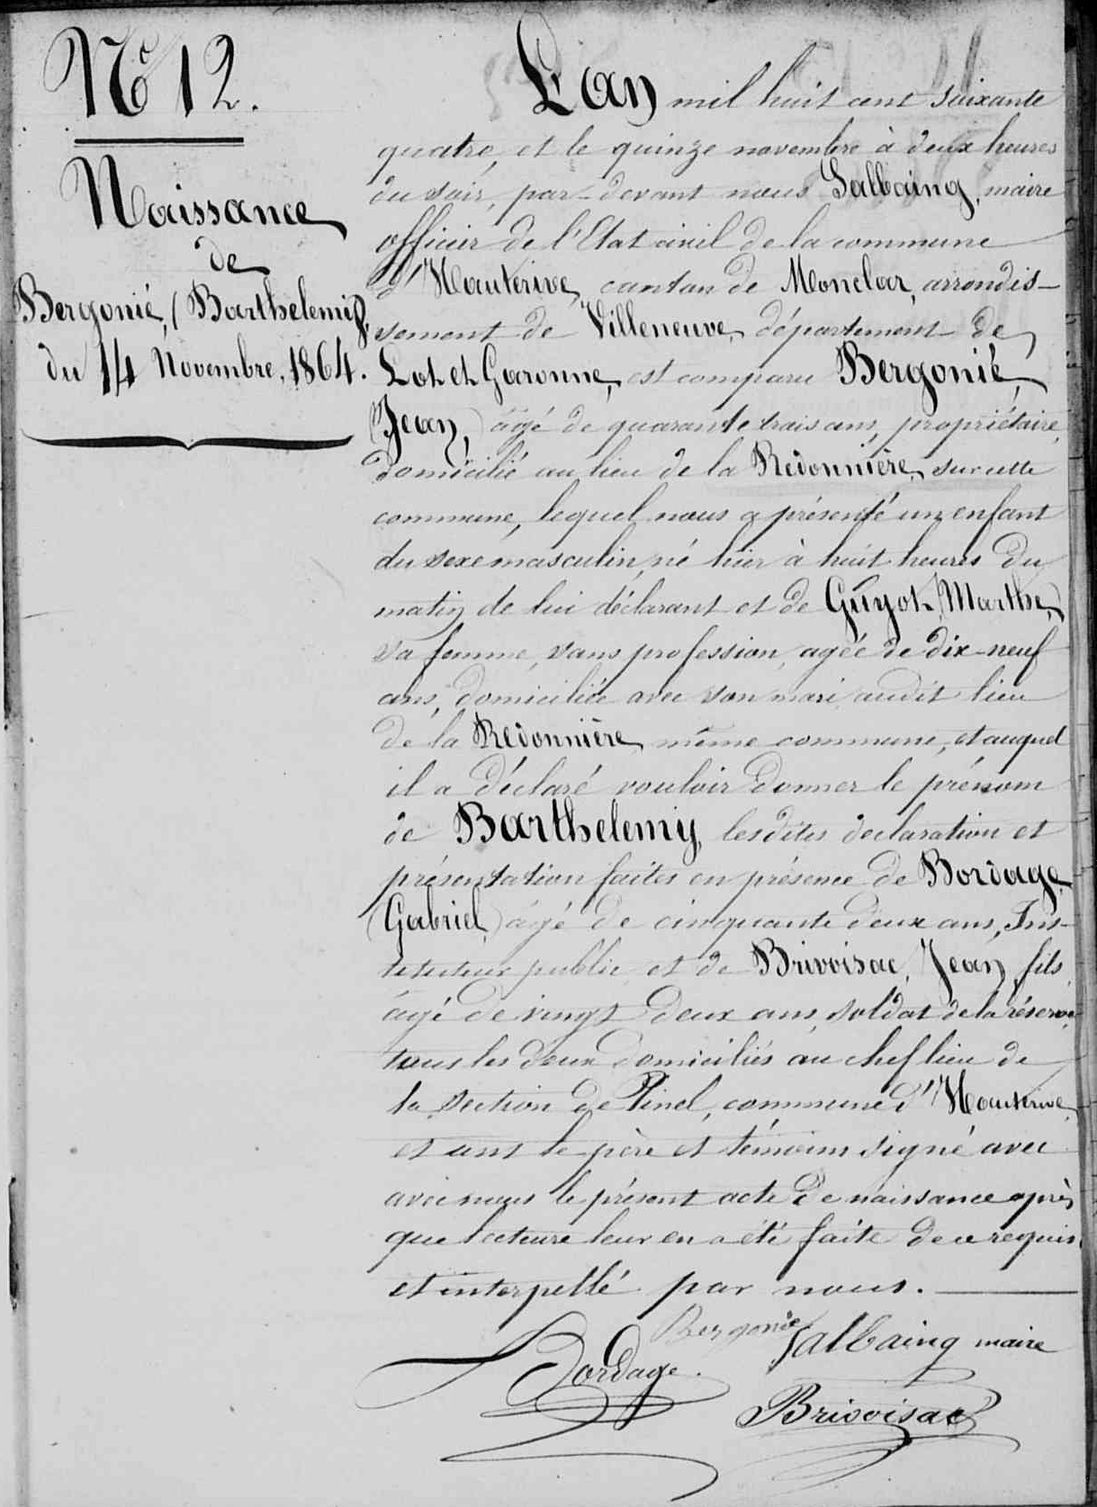 N° 12.
Naissance
de
Bergonié, (Barthelemy),
du 14 Novembre, 1864.
L'an mil huit cent soixante
quatre, et le quinze novembre à deux heures
du soir, par-devant nous Salbaing, maire
officier de l'Etat civil de la commune
d'Hauterive, canton de Monclar, arrondis-
sement de Villeneuve, département de
Lot et Garonne, est comparu Bergonié,
(Jean,) âgé de quarante trois ans, propriétaire,
domicilié au lieu de la Redonnière, sur cette
commune, lequel nous a présenté un enfant
du sexe masculin, né hier à huit heures du
matin de lui déclarant et de Guyot (Marthe,)
sa femme, sans profession, agée de dix-neuf
ans, domiciliée avec son mari audit lieu
de la Redonnière même commune, et auquel
il a déclaré vouloir donner le prénom
de Barthelemy, lesdites declaration et
présentation faites en présence de Bordage
(Gabriel,) âgé de cinquante deux ans, Ins-
tituteur public et de Brivoisac, Jean fils
âgé de vingt deux ans, soldat de la réserve,
tous les deux domiciliés au chef lieu de
la section de Pinel, commune d'Hauterive,
et ont le père et témoins signé avec
avec nous le présent acte de naissance après
que lecture leur en a été faite de ce requis
et interpellé par nous.
Bergonié Salbaing maire
Bordage.
Brivoisac